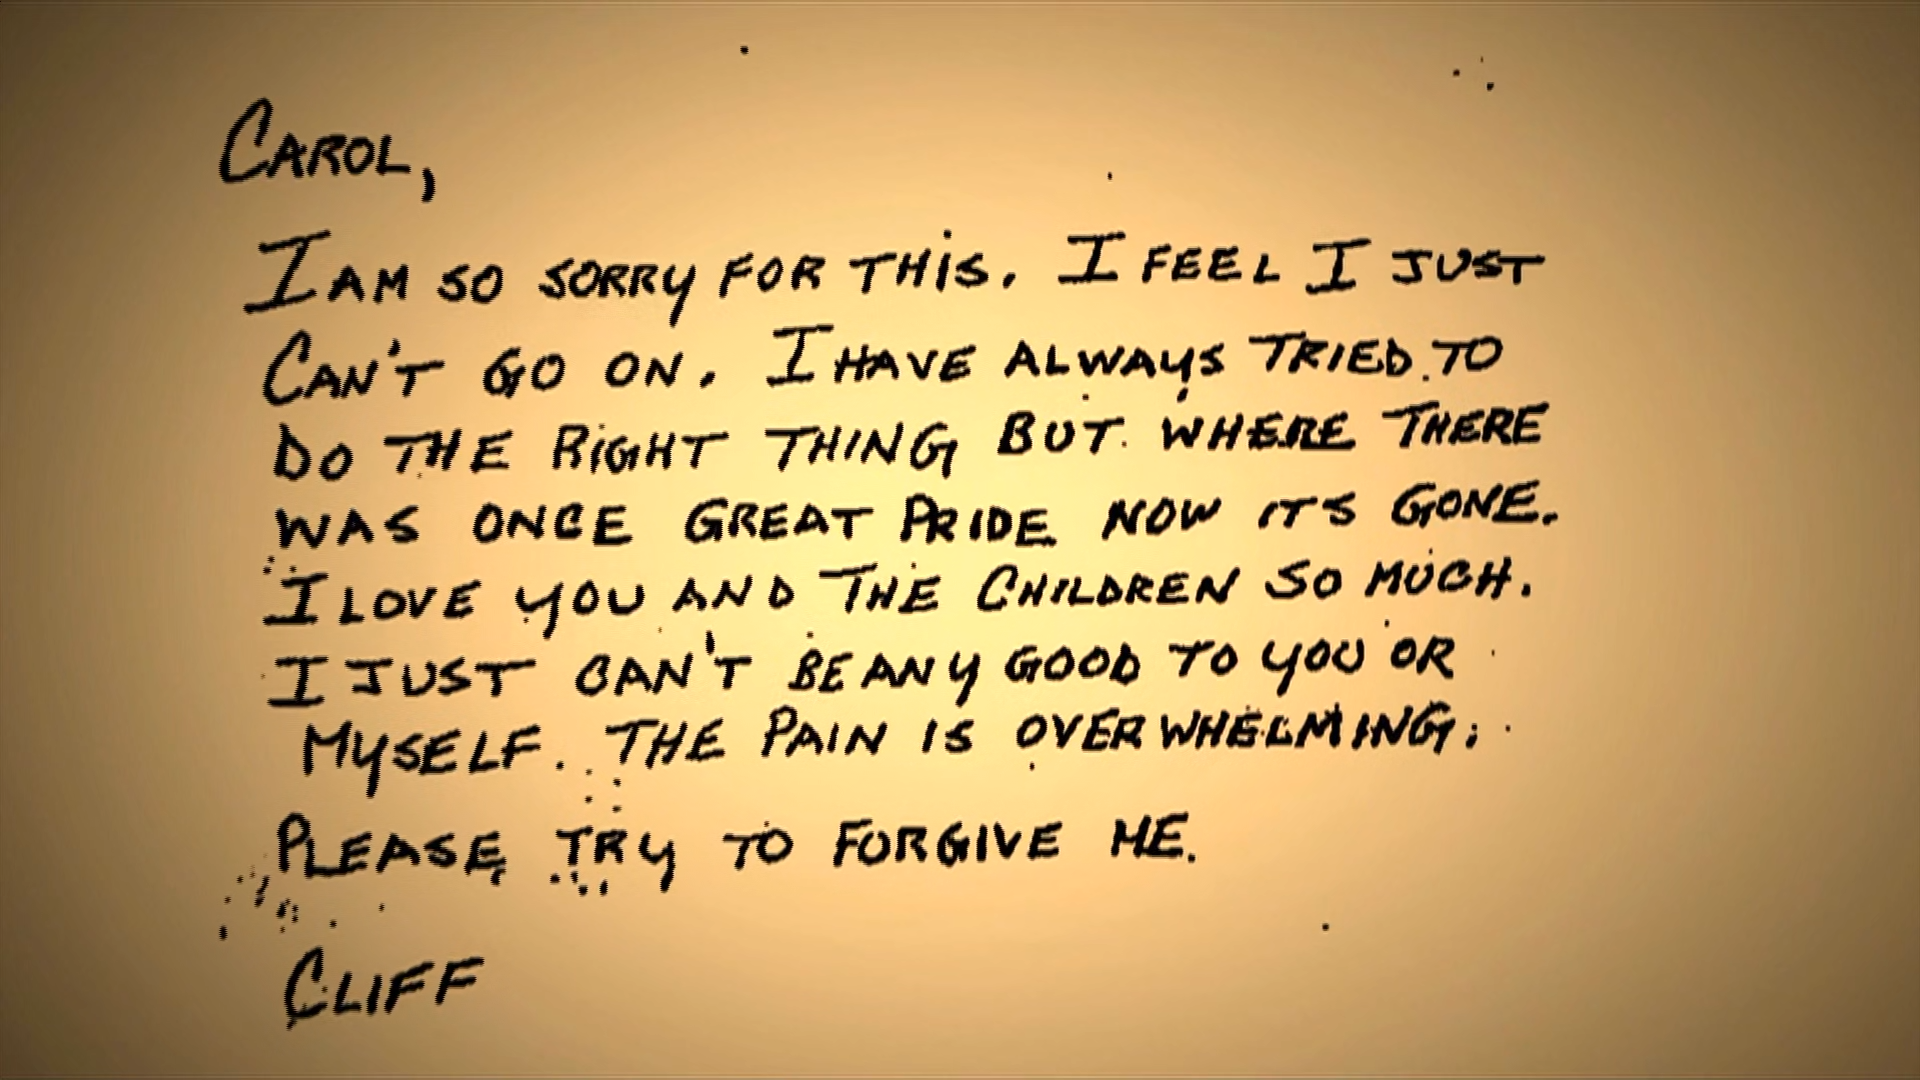 CAROL,
I AM SO SORRY FOR THIS. I FEEL I JUST
CAN'T GO ON. I HAVE ALWAYS TRIED TO
DO THE RIGHT THING BUT WHERE THERE
WAS ONCE GREAT PRIDE NOW IT'S GONE.
I LOVE YOU AND THE CHILDREN SO MUCH.
I JUST CAN'T BE ANY GOOD TO YOU OR
MYSELF. THE PAIN IS OVERWHELMING.
PLEASE TRY TO FORGIVE ME.
CLIFF